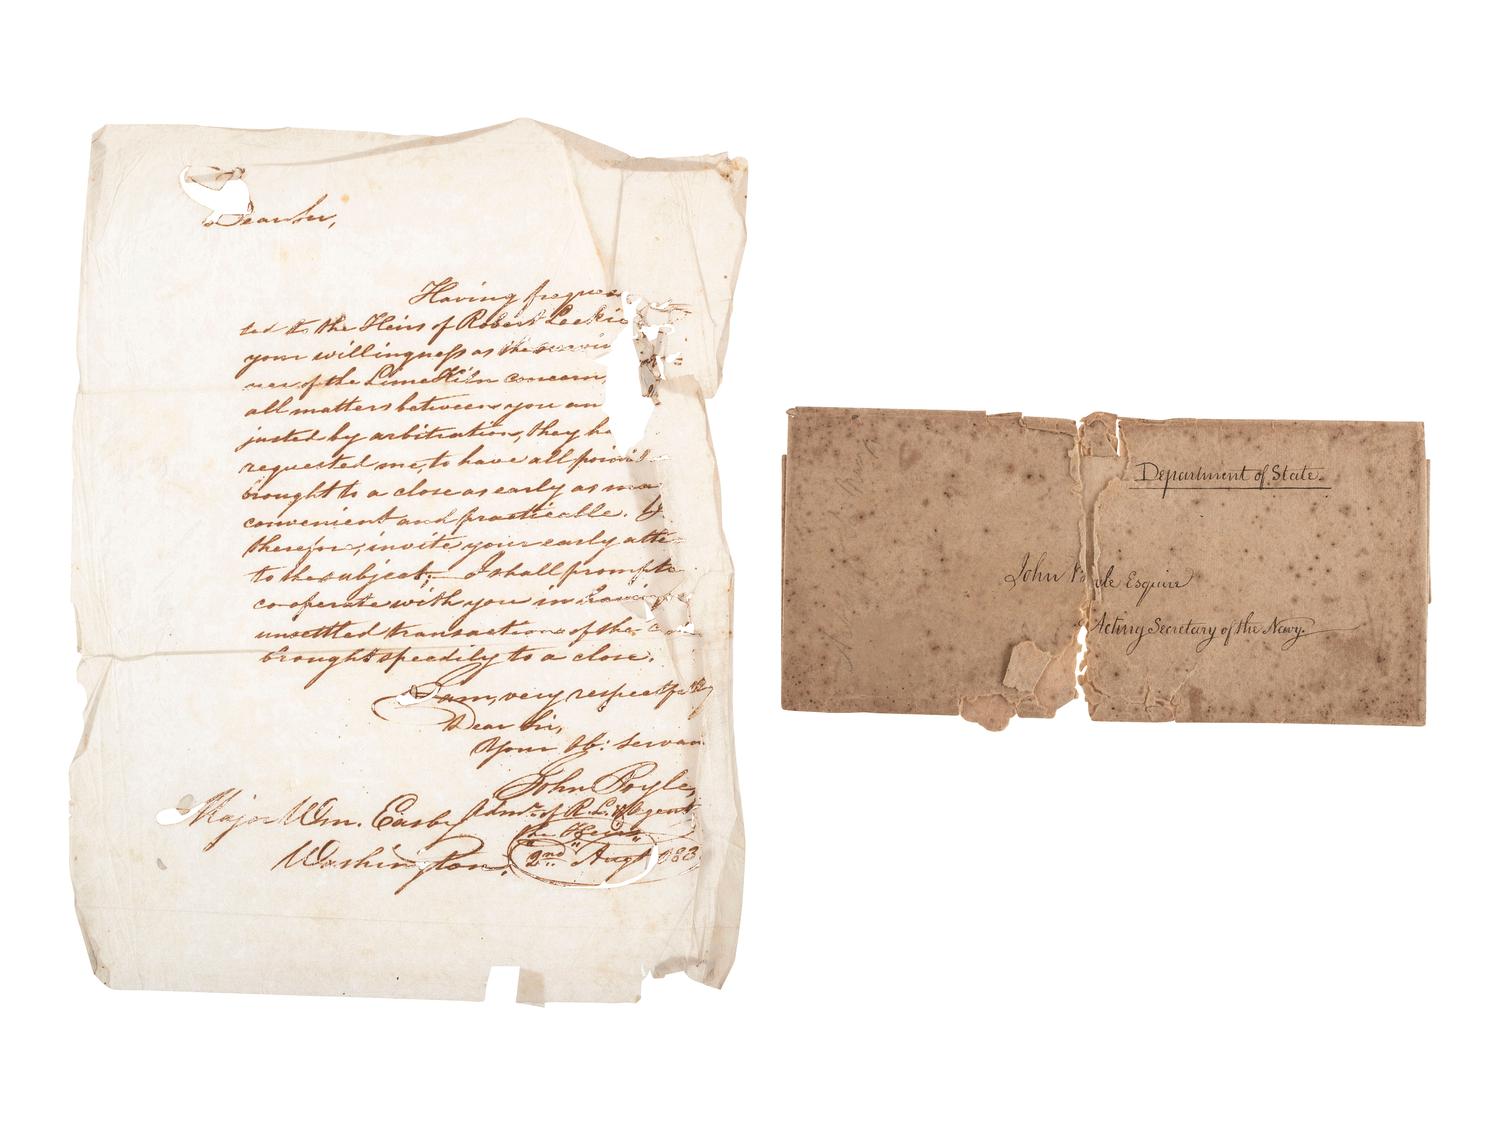 Dear Sir,
Having freque
ted to the Heirs of Robert Leckie
your willingness as the survi
ner of the Lime Kiln concern,
all matters between you an
justed by arbitration, they ha
requested me, to have all
brought to a close as early as ma
convenient and practicable. I
therefore, invite your early atte
to the subject; — I shall prompt
co-operate with you in having
unsettled transactions of the
brought speedily to a close.
I am, very respectfully
Dear Sir,
Your Ob: Servan
John Boyle,
Major Wm. Easby Admr. of R. L. & Agent
the Heirs
Washington. 2nd Augt 183
Department of State.
John Boyle Esquire
Acting Secretary of the Navy.